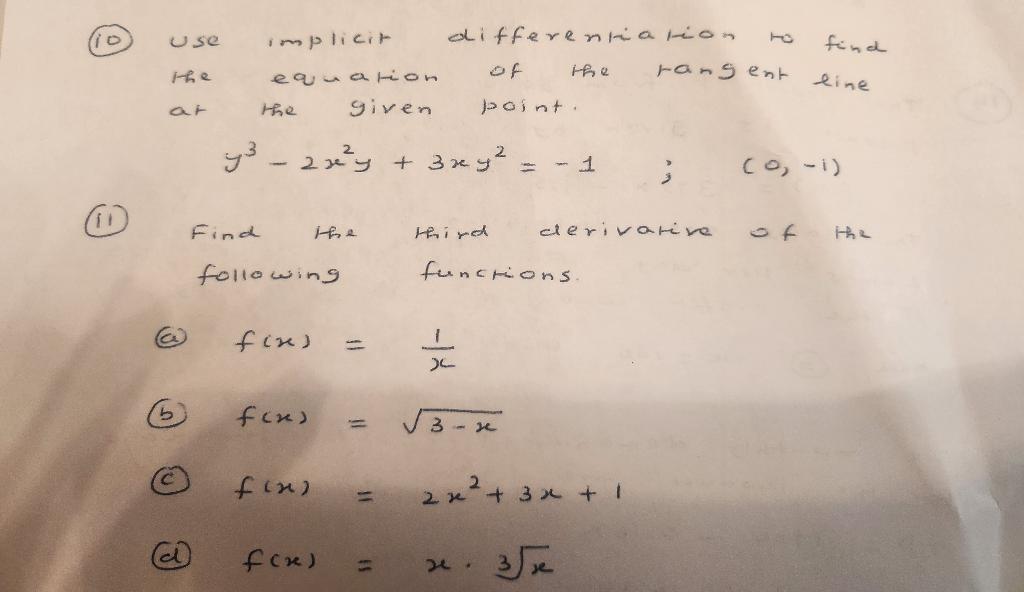 (10) Use implicit differentiation to find
the equation of the tangent line
at the given point.
y³ - 2x²y + 3xy² = -1 ; (0, -1)
(11) Find the third derivative of the
following functions.
(a) f(x) = 1/x
(b) f(x) = √(3-x)
(c) f(x) = 2x² + 3x + 1
(d) f(x) = x . ∛x